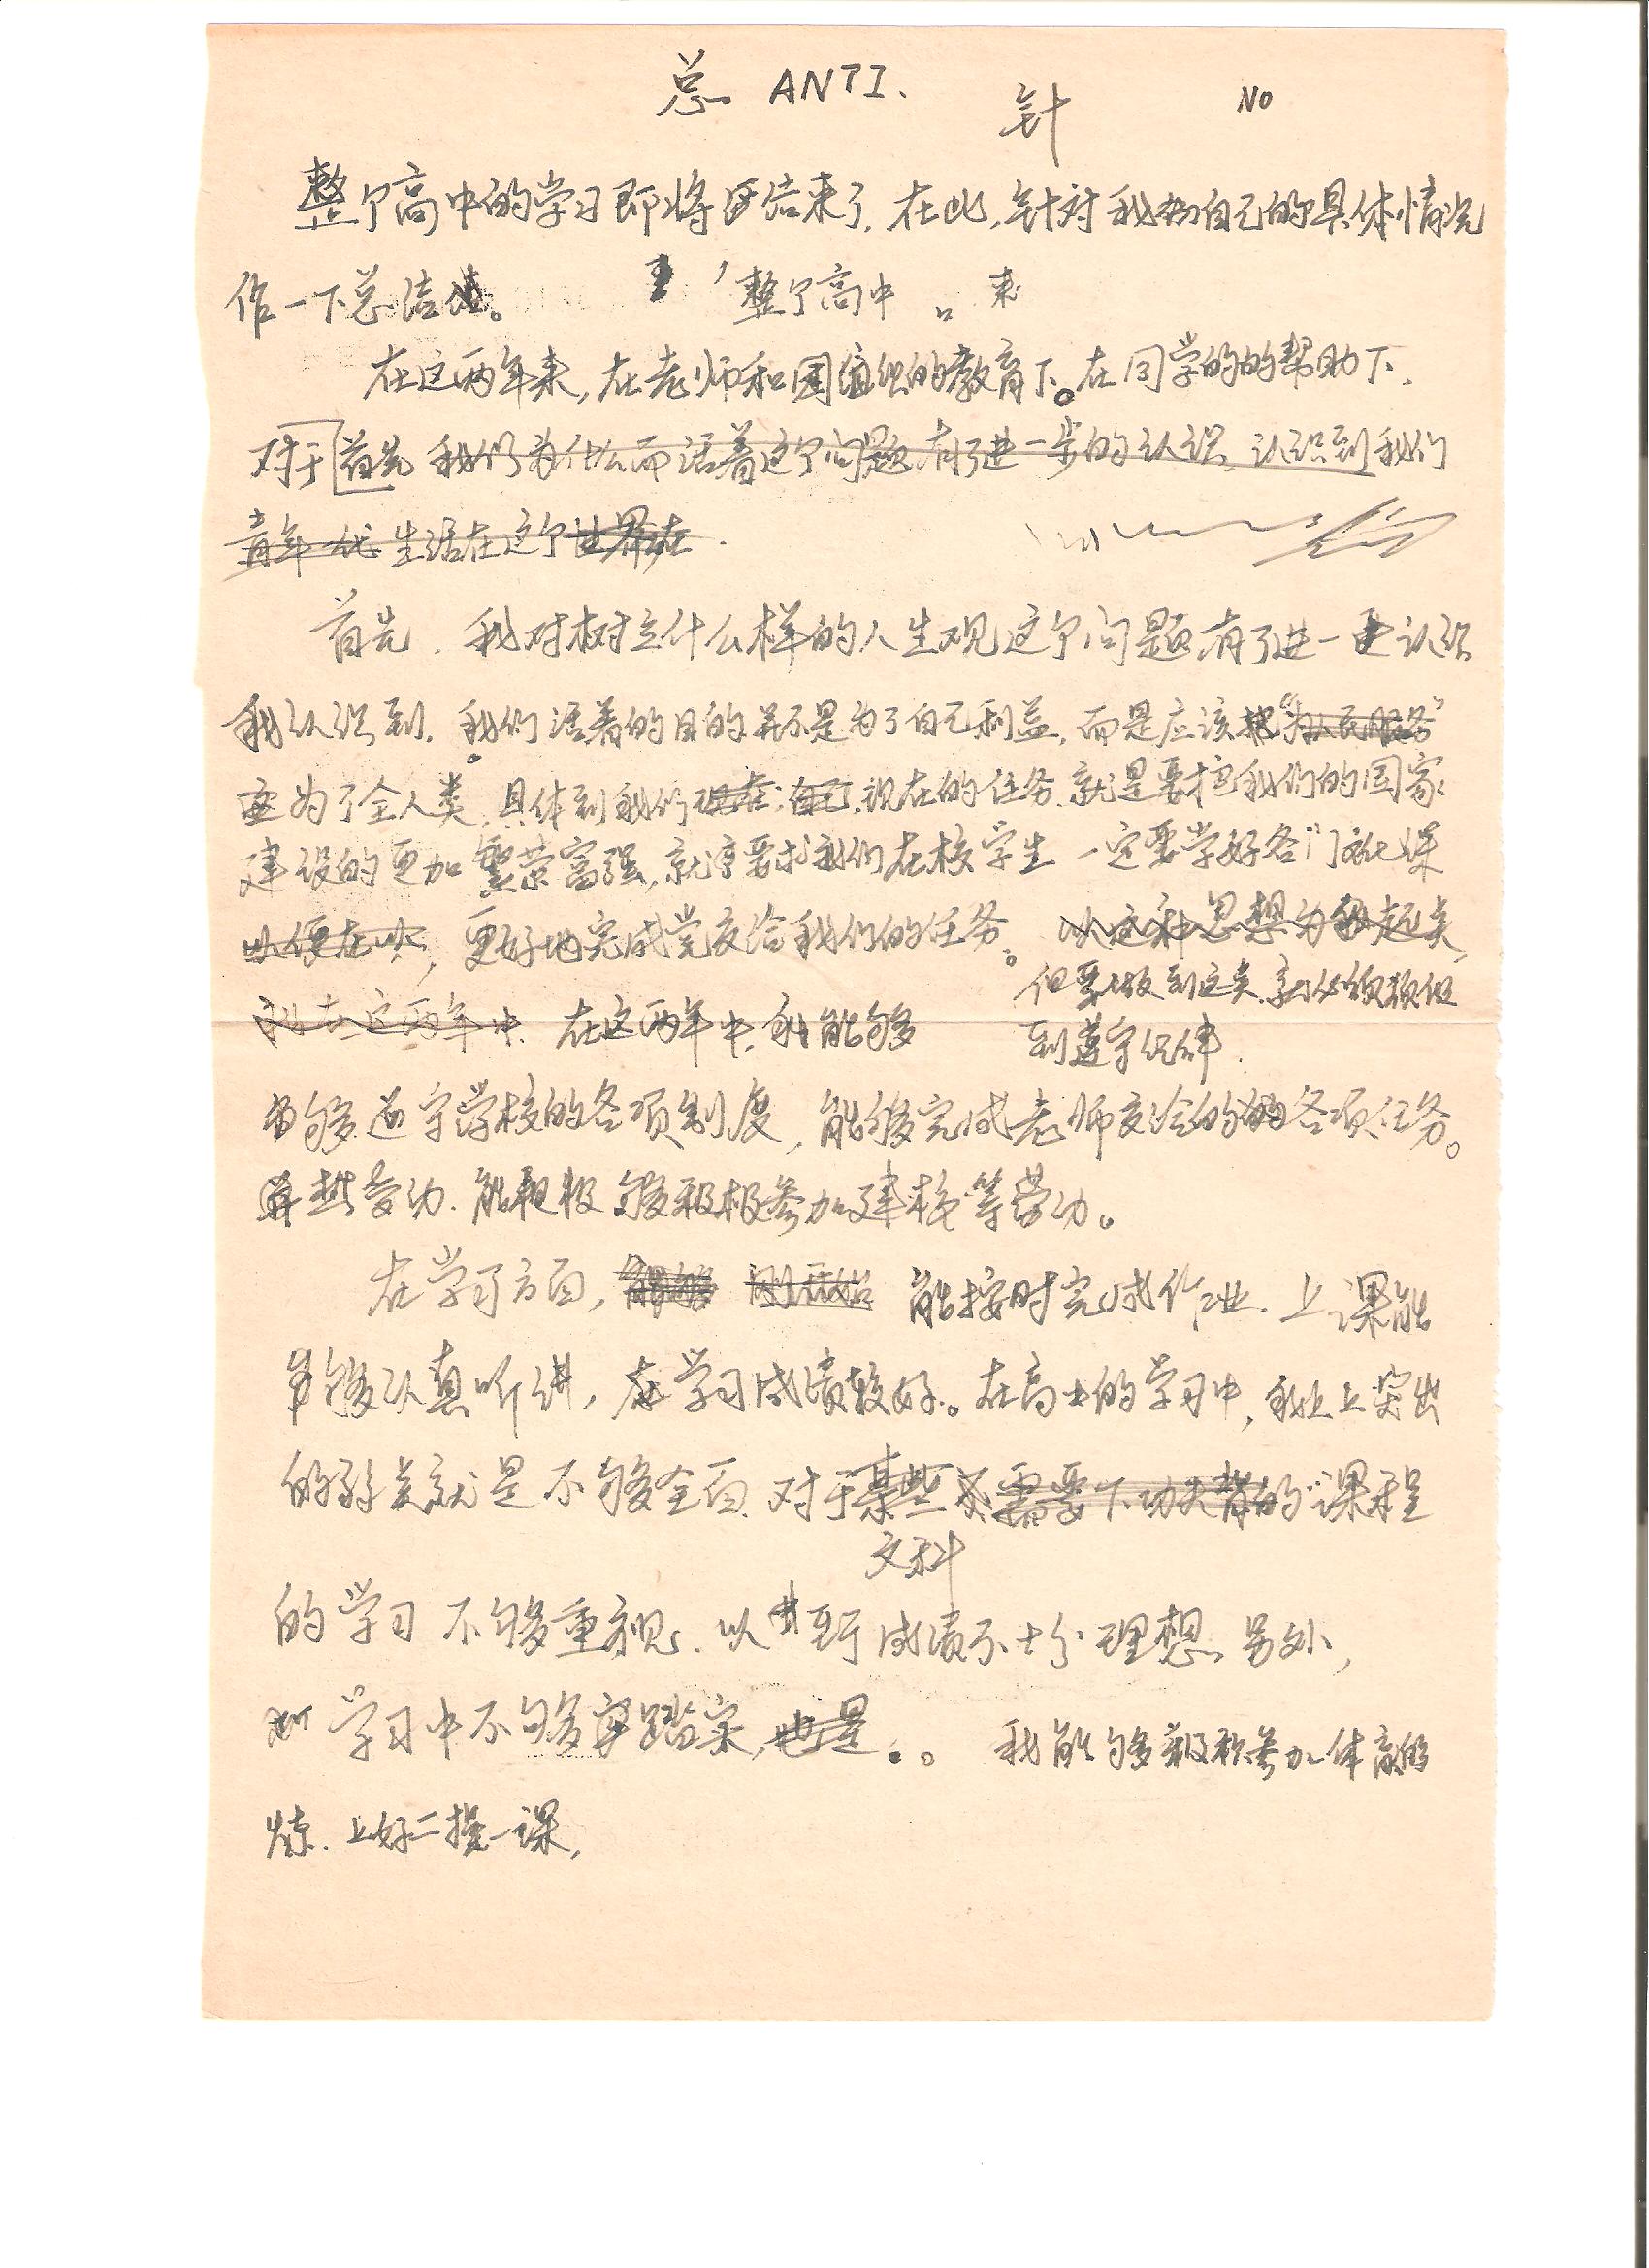 总 ANTI. 针 NO
整个高中的学习即将结束了.在此,针对我自己的具体情况
作一下总结。 整个高中 来
在这两年来,在老师和团组织的教育下。在同学的的帮助下,
对于首先我们为什么而活着这个问题有了进一步的认识,认识到我们
青年一代生活在这个世界在.
首先.我对树立什么样的人生观这个问题有了进一更认识
我认识到.我们活着的目的并不是为了自己利益,而是应该把“为人民服务”
应为了全人类,具体到我们现在自己,现在的任务,就是要把我们的国家
建设的更加繁荣富强,就需要求我们在校学生一定要学好各门文化课
以便在以,更好地完成党交给我们的任务。以这种思想为起点,
但要做到这点.就必须须做
我在这两年中.在这两年中,我能够
到遵守纪律.
够遵守学校的各项制度,能够完成老师交给的各项任务。
热爱劳动.能积极够积极参加建校等劳动。
在学习方面,能够 刚开始 能按时完成作业.上课能
够认真听讲,在学习成绩较好。在高中的学习中,我上突出
的弱点就是不够全面.对于某些需要下功夫背的课程
文科
的学习不够重视.以至于成绩不十分理想.另外,
对学习中不够踏实,也是.。我能够积极参加体育锻
炼.上好二操一课,